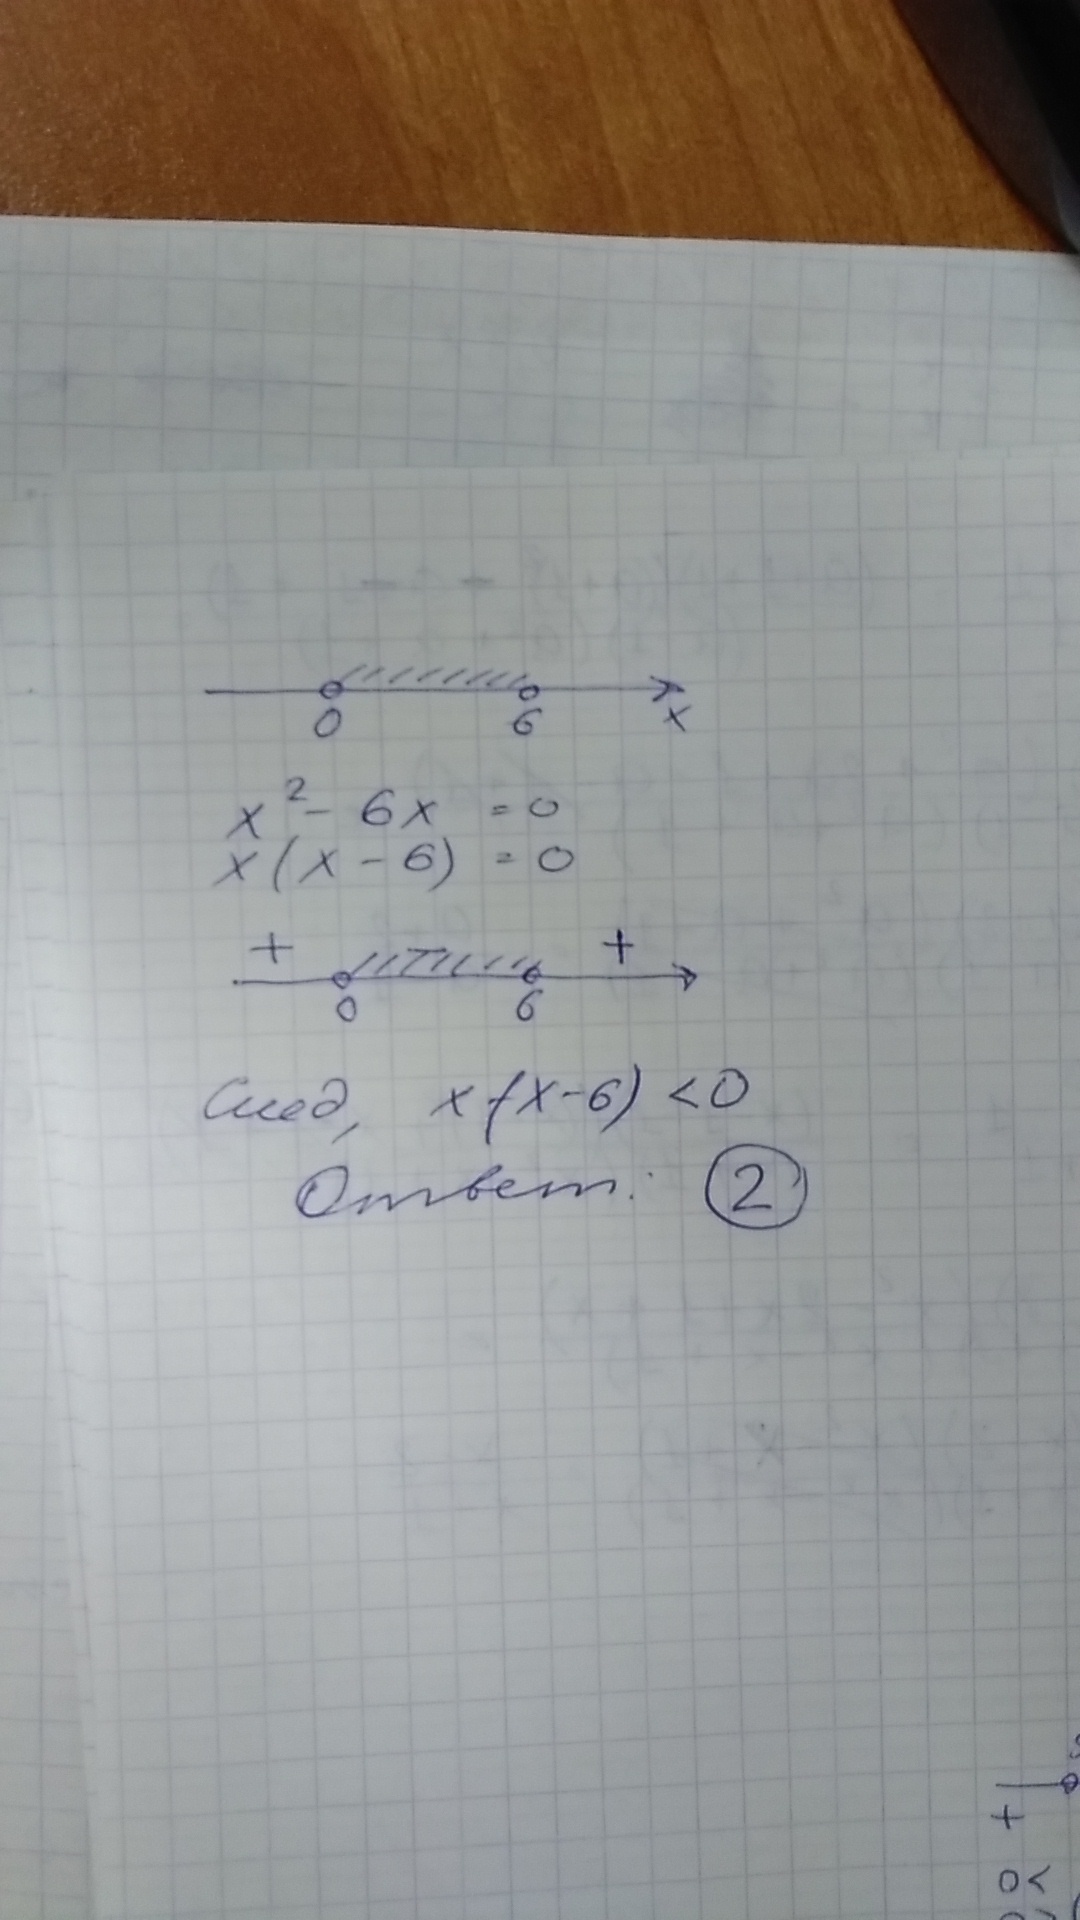 0 6 x
x² - 6x = 0
x(x - 6) = 0
+ - +
0 6
След, x·(x-6) < 0
Ответ: 2
+
0 <